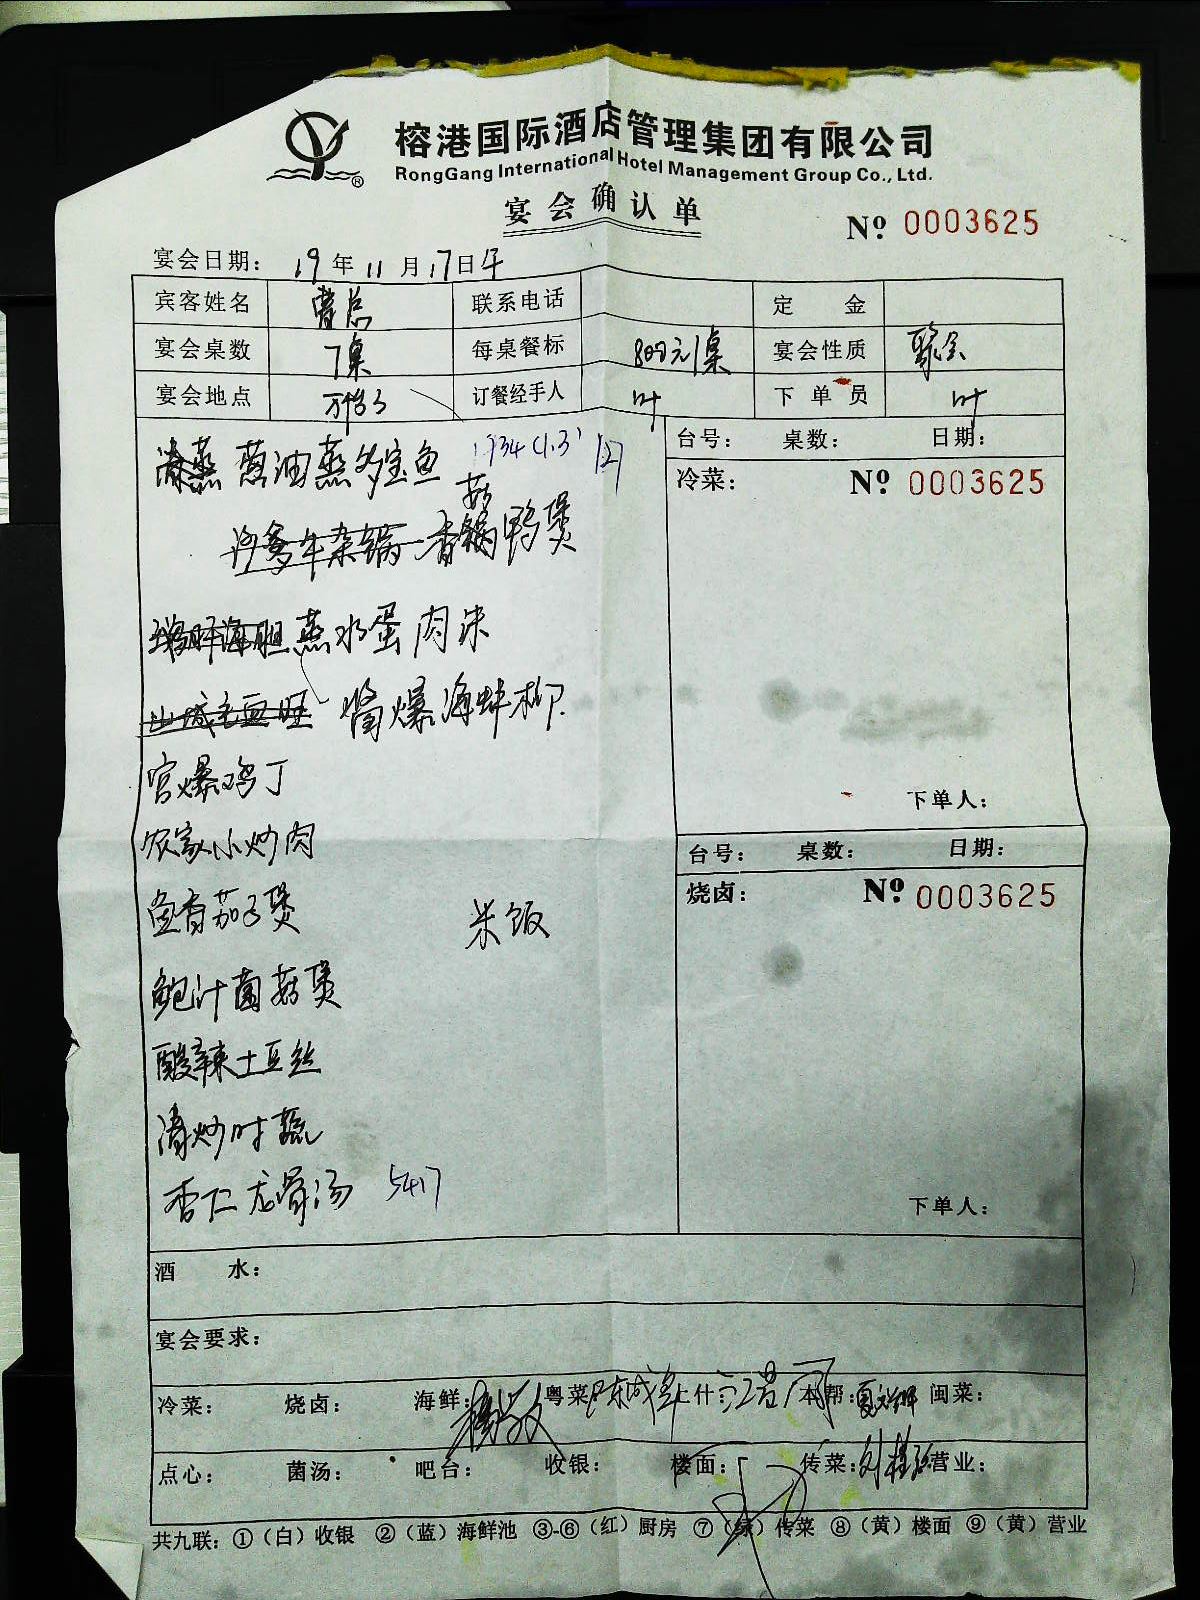 榕港国际酒店管理集团有限公司
RongGang International Hotel Management Group Co., Ltd.
宴会确认单
Nº 0003625
宴会日期： 19年11月17日午
宾客姓名 曹总 联系电话 定金
宴会桌数 7桌 每桌餐标 800元/桌 宴会性质 聚会
宴会地点 订餐经手人 叶 下单员 叶
葱油蒸多宝鱼
台号： 桌数： 日期：
冷菜： Nº 0003625
沙爹牛杂锅 香菇锅鸭煲
海胆蒸水蛋肉沫
山城毛血旺 酱爆海蚌柳
宫爆鸡丁
下单人：
农家小炒肉
台号： 桌数： 日期：
烧卤： Nº 0003625
鱼香茄子煲 米饭
鲍汁菌菇煲
酸辣土豆丝
清炒时蔬
杏仁龙骨汤 5417
下单人：
酒水：
宴会要求：
冷菜： 烧卤： 海鲜： 粤菜 上什： 本帮： 闽菜：
点心： 菌汤： 吧台： 收银： 楼面： 传菜： 营业：
共九联：①（白）收银 ②（蓝）海鲜池 ③-⑥（红）厨房 ⑦（绿）传菜 ⑧（黄）楼面 ⑨（黄）营业